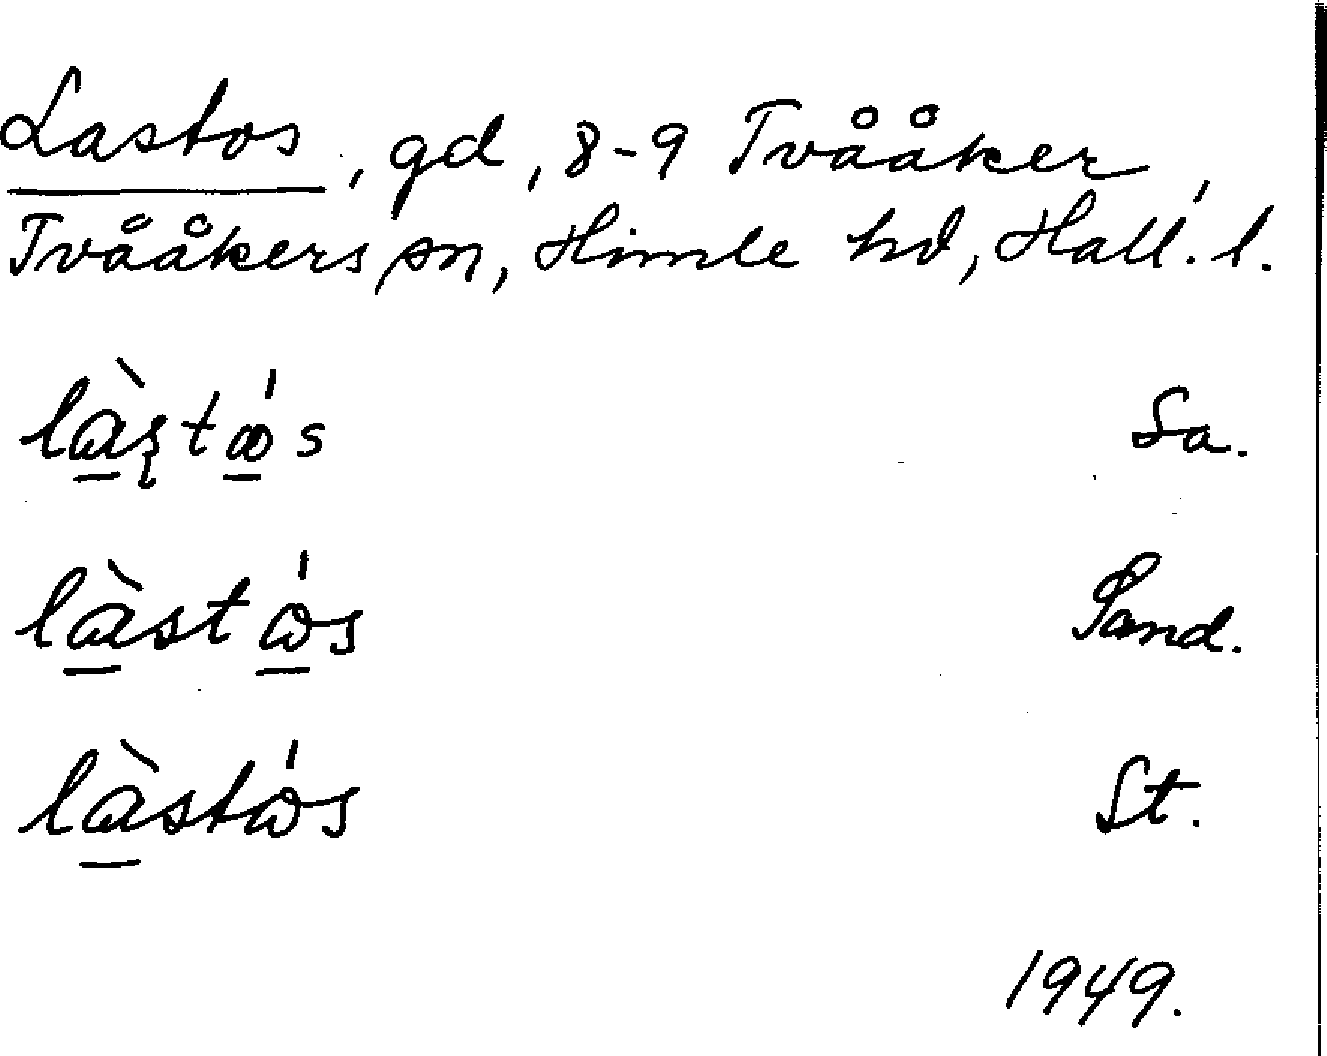 Lastos, gd, 8-9 Tvååker,
Tvååkers sn, Himle hd, Hall. l.
là̱ʂtꞷ̱́s Sa.
là̱stꞷ̱́s Sand.
là̱stꞷ́s St.
1949.